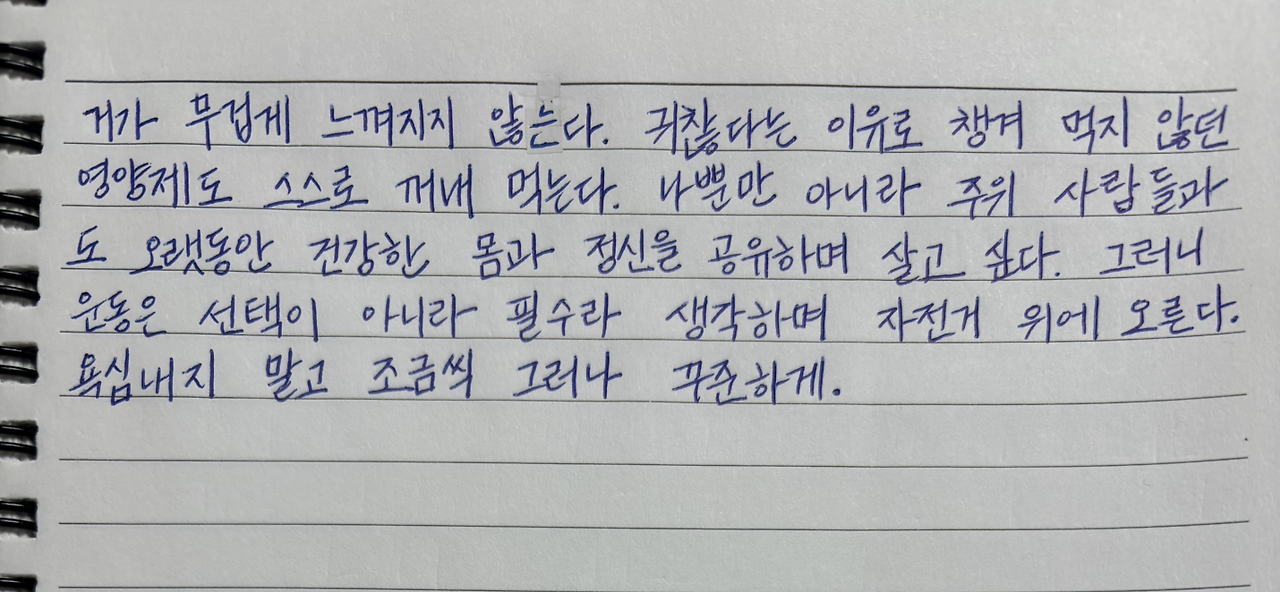 거가 무겁게 느껴지지 않는다. 귀찮다는 이유로 챙겨 먹지 않던
영양제도 스스로 꺼내 먹는다. 나뿐만 아니라 주위 사람들과
도 오랫동안 건강한 몸과 정신을 공유하며 살고 싶다. 그러니
운동은 선택이 아니라 필수라 생각하며 자전거 위에 오른다.
욕심내지 말고 조금씩 그러나 꾸준하게.